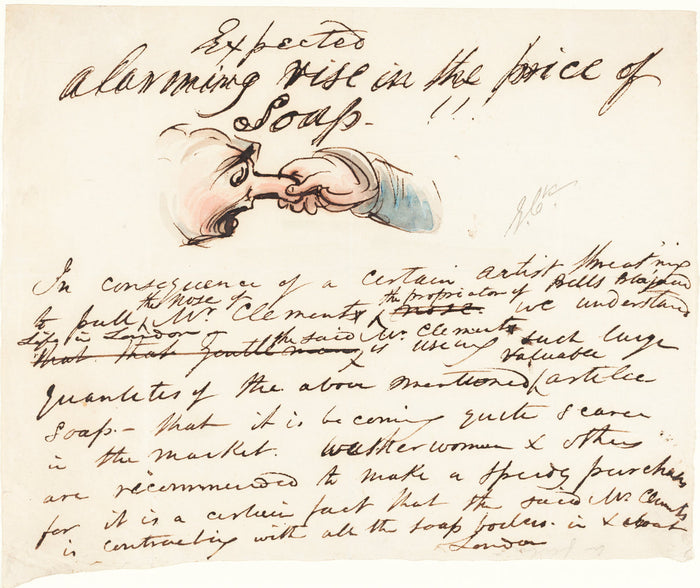 Expected
alarming rise in the price of
Soap - !!!
G. Ck.
In consequence of a certain artist threating
to pull the nose of Mr Clements the propriator of Bells Blajared
Life in London - nose. we understand
that that gentleman the said Mr Clements is using such large
Quantetes of the above mentioned valuable artilce
Soap. - that it is becoming quite scarce
in the market. Washerwomen & others
are recommended to make a speedy purchase
for it is a certain fact that the said Mr Clements
is contracting with all the soap boilers. in & about
London